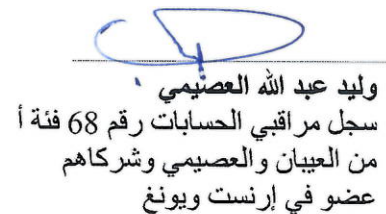 وليد عبد الله العصيمي
سجل مراقبي الحسابات رقم 68 فئة أ
من العيبان والعصيمي وشركاهم
عضو في إرنست ويونغ